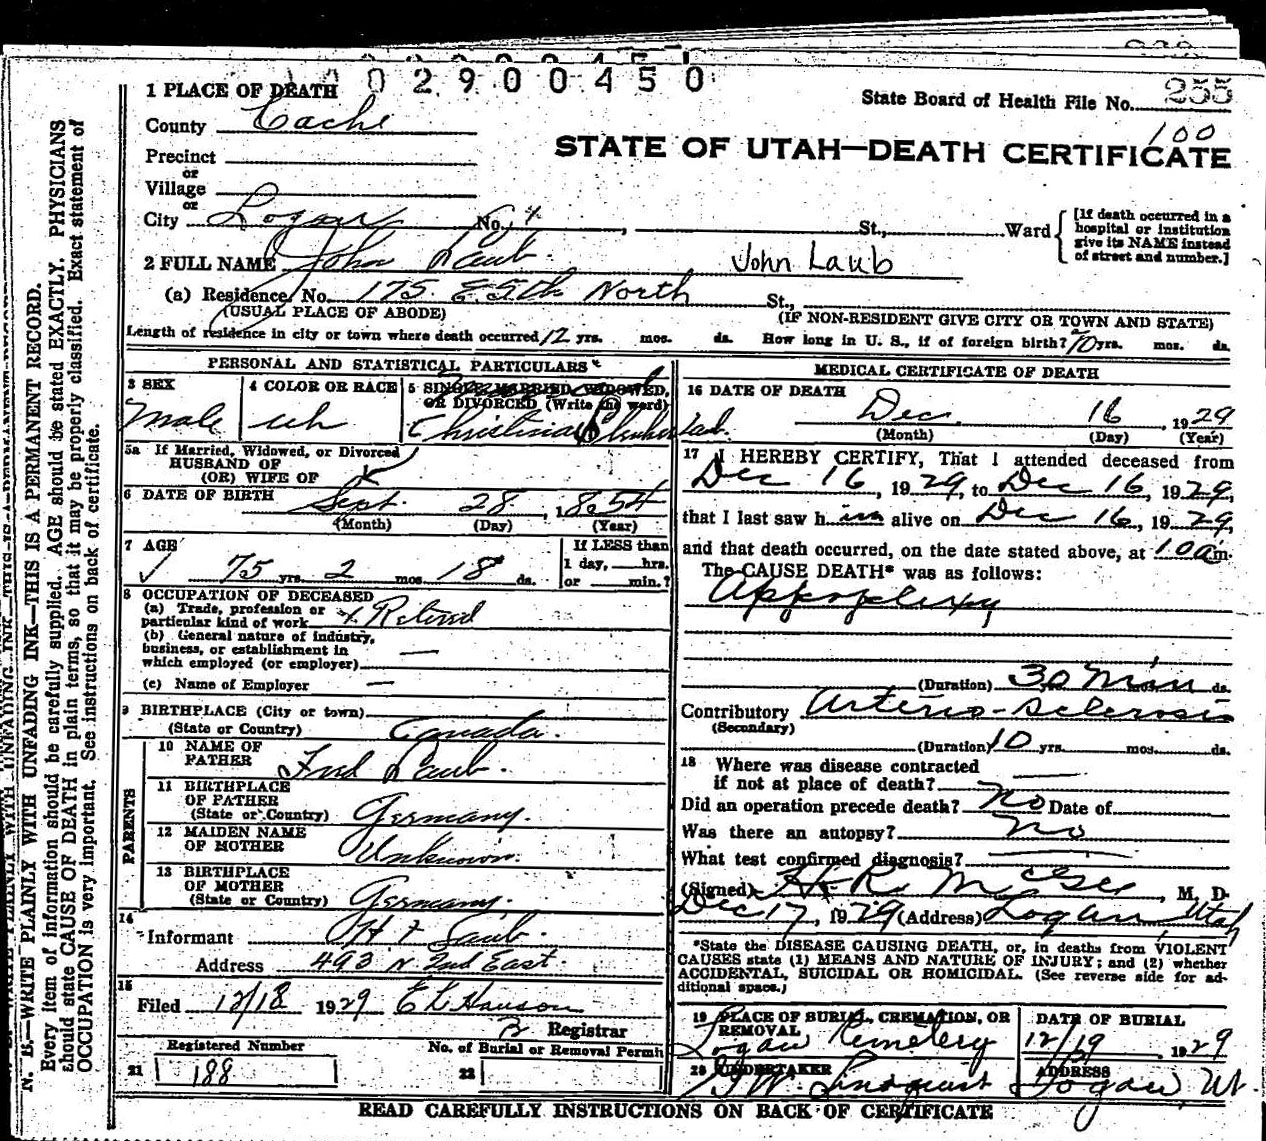 02900450
1 PLACE OF DEATH
State Board of Health File No. 255
100
County Cache
STATE OF UTAH—DEATH CERTIFICATE
Precinct
or
Village
or
City Logan No. St., Ward
[If death occurred in a hospital or institution give its NAME instead of street and number.]
2 FULL NAME John Laub John Laub
(a) Residence, No. 175 E 5th North St.,
(USUAL PLACE OF ABODE) (IF NON-RESIDENT GIVE CITY OR TOWN AND STATE)
Length of residence in city or town where death occurred 12 yrs. mos. ds. How long in U. S., if of foreign birth? 70 yrs. mos. ds.
PERSONAL AND STATISTICAL PARTICULARS
3 SEX
Male
4 COLOR OR RACE
wh
5 SINGLE, MARRIED, WIDOWED,
OR DIVORCED (Write the word)
Christina
5a If Married, Widowed, or Divorced
HUSBAND OF
(OR) WIFE OF
6 DATE OF BIRTH Sept. 28, 1854
(Month) (Day) (Year)
7 AGE
75 yrs. 2 mos. 18 ds.
If LESS than
1 day, hrs.
or min.?
8 OCCUPATION OF DECEASED
(a) Trade, profession or
particular kind of work Retired
(b) General nature of industry,
business, or establishment in
which employed (or employer) —
(c) Name of Employer —
9 BIRTHPLACE (City or town)
(State or Country) Canada.
PARENTS
10 NAME OF
FATHER Fred Laub.
11 BIRTHPLACE
OF FATHER
(State or Country) Germany.
12 MAIDEN NAME
OF MOTHER Unknown.
13 BIRTHPLACE
OF MOTHER
(State or Country) Germany.
14
Informant H F Laub.
Address 493 N 2nd East.
15
Filed 12/18 1929 E L Hanson
Registrar
Registered Number
21 188
No. of Burial or Removal Permit
22
MEDICAL CERTIFICATE OF DEATH
16 DATE OF DEATH
Dec 16 1929
(Month) (Day) (Year)
17 I HEREBY CERTIFY, That I attended deceased from
Dec 16, 1929, to Dec 16, 1929,
that I last saw him alive on Dec 16, 1929,
and that death occurred, on the date stated above, at 100am.
The CAUSE DEATH* was as follows:
Appoplexy
(Duration) 30 Min ds.
Contributory Arterio-Sclerosis
(Secondary)
(Duration) 10 yrs. mos. ds.
18 Where was disease contracted
if not at place of death? —
Did an operation precede death? No Date of
Was there an autopsy? No
What test confirmed diagnosis? —
(Signed) M. D.
Dec 17, 1929 (Address) Logan, Utah
*State the DISEASE CAUSING DEATH, or, in deaths from VIOLENT
CAUSES state (1) MEANS AND NATURE OF INJURY; and (2) whether
ACCIDENTAL, SUICIDAL OR HOMICIDAL. (See reverse side for ad-
ditional space.)
19 PLACE OF BURIAL, CREMATION, OR
REMOVAL
Logan Cemetery
DATE OF BURIAL
12/19 1929
20 UNDERTAKER
Lindquist
ADDRESS
Logan, Ut.
READ CAREFULLY INSTRUCTIONS ON BACK OF CERTIFICATE
N. B.—WRITE PLAINLY WITH UNFADING INK—THIS IS A PERMANENT RECORD.
Every item of information should be carefully supplied. AGE should be stated EXACTLY. PHYSICIANS
should state CAUSE OF DEATH in plain terms, so that it may be properly classified. Exact statement of
OCCUPATION is very important. See instructions on back of certificate.